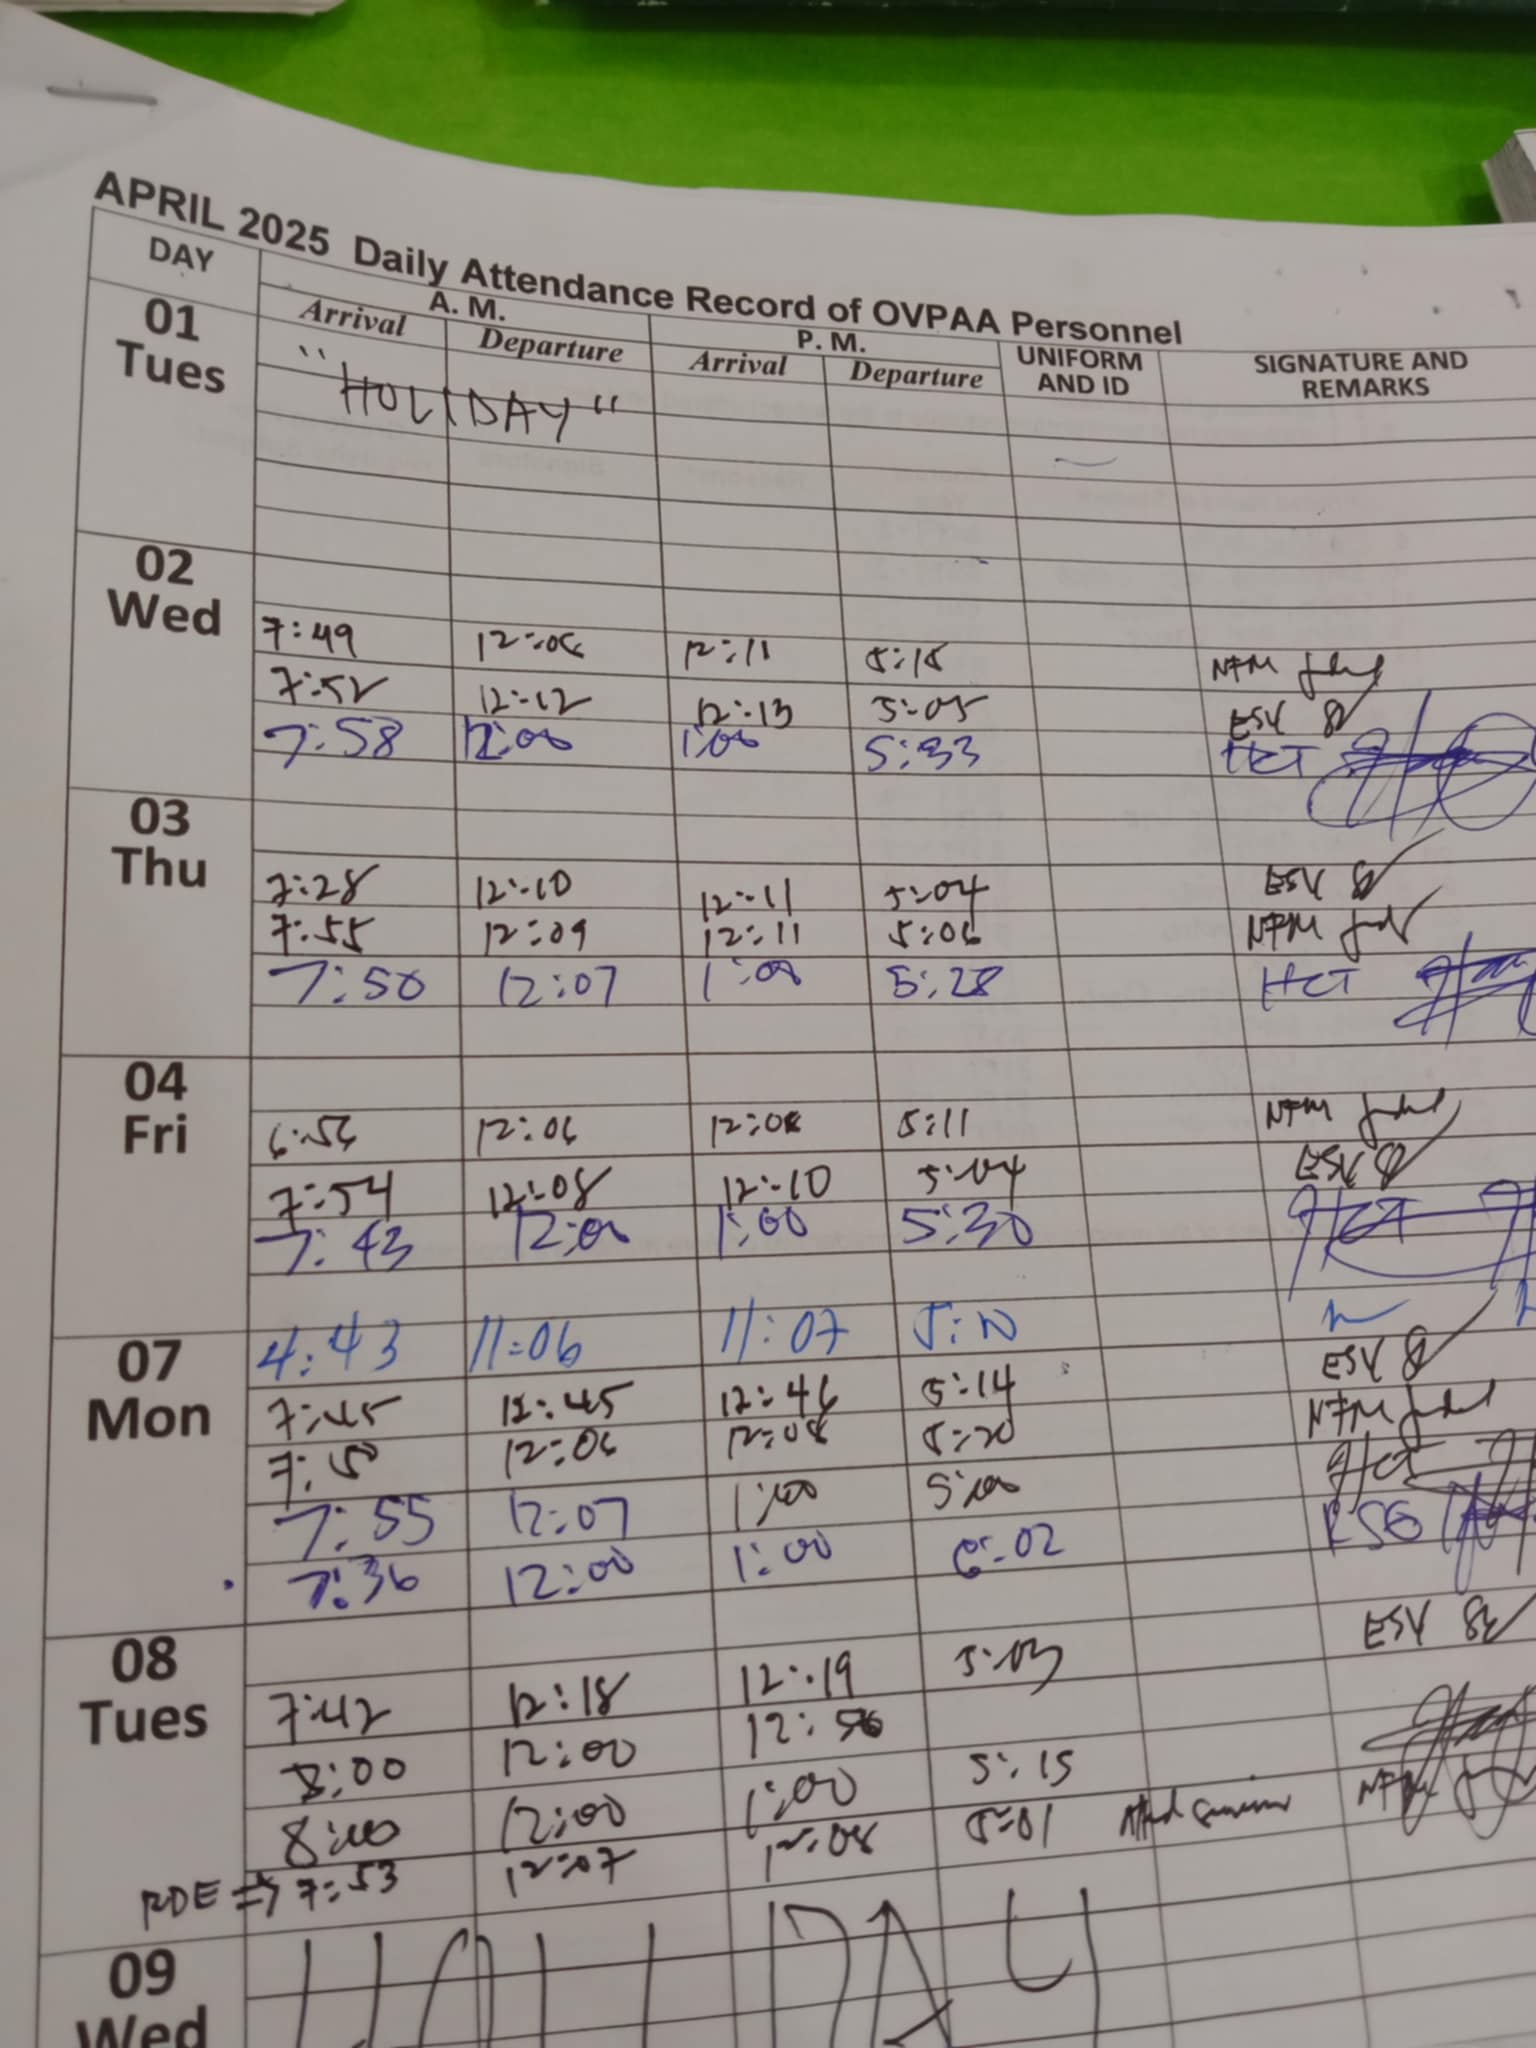 APRIL 2025 Daily Attendance Record of OVPAA Personnel
DAY A. M. P. M. UNIFORM AND ID SIGNATURE AND REMARKS
Arrival Departure Arrival Departure
01 Tues
"HOLIDAY"
02 Wed
7:49 12:06 12:11 5:18 NFM
7:52 12:12 12:13 5:05 ESV
7:58 12:00 1:00 5:33 HCT
03 Thu
7:28 12:10 12:11 5:04 ESV
7:55 12:09 12:11 5:06 NFM
7:50 12:07 1:00 5:28 HCT
04 Fri
6:56 12:06 12:08 5:11 NFM
7:54 12:08 12:10 5:04 ESV
7:43 12:00 1:00 5:30 HCT
07 Mon
4:43 11:06 11:07
7:45 12:45 12:46 5:14 ESV
7:50 12:06 12:08 5:20 NFM
7:55 12:07 1:00 5:00 HCT
7:36 12:00 1:00 6:02
08 Tues
7:42 12:18 12:19 5:03 ESV
8:00 12:00 12:56
8:00 12:00 1:00 5:15
RDE => 7:53 12:07 12:08 5:01 NFM
09 Wed
HOLIDAY